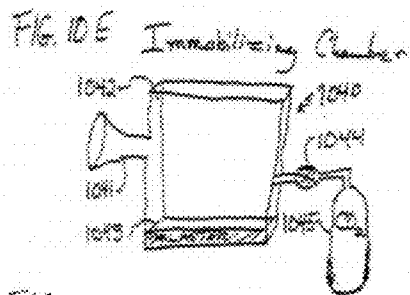 FIG. 10E
Immobilizing Chamber
1042
1040
1044
1041
1043
1045